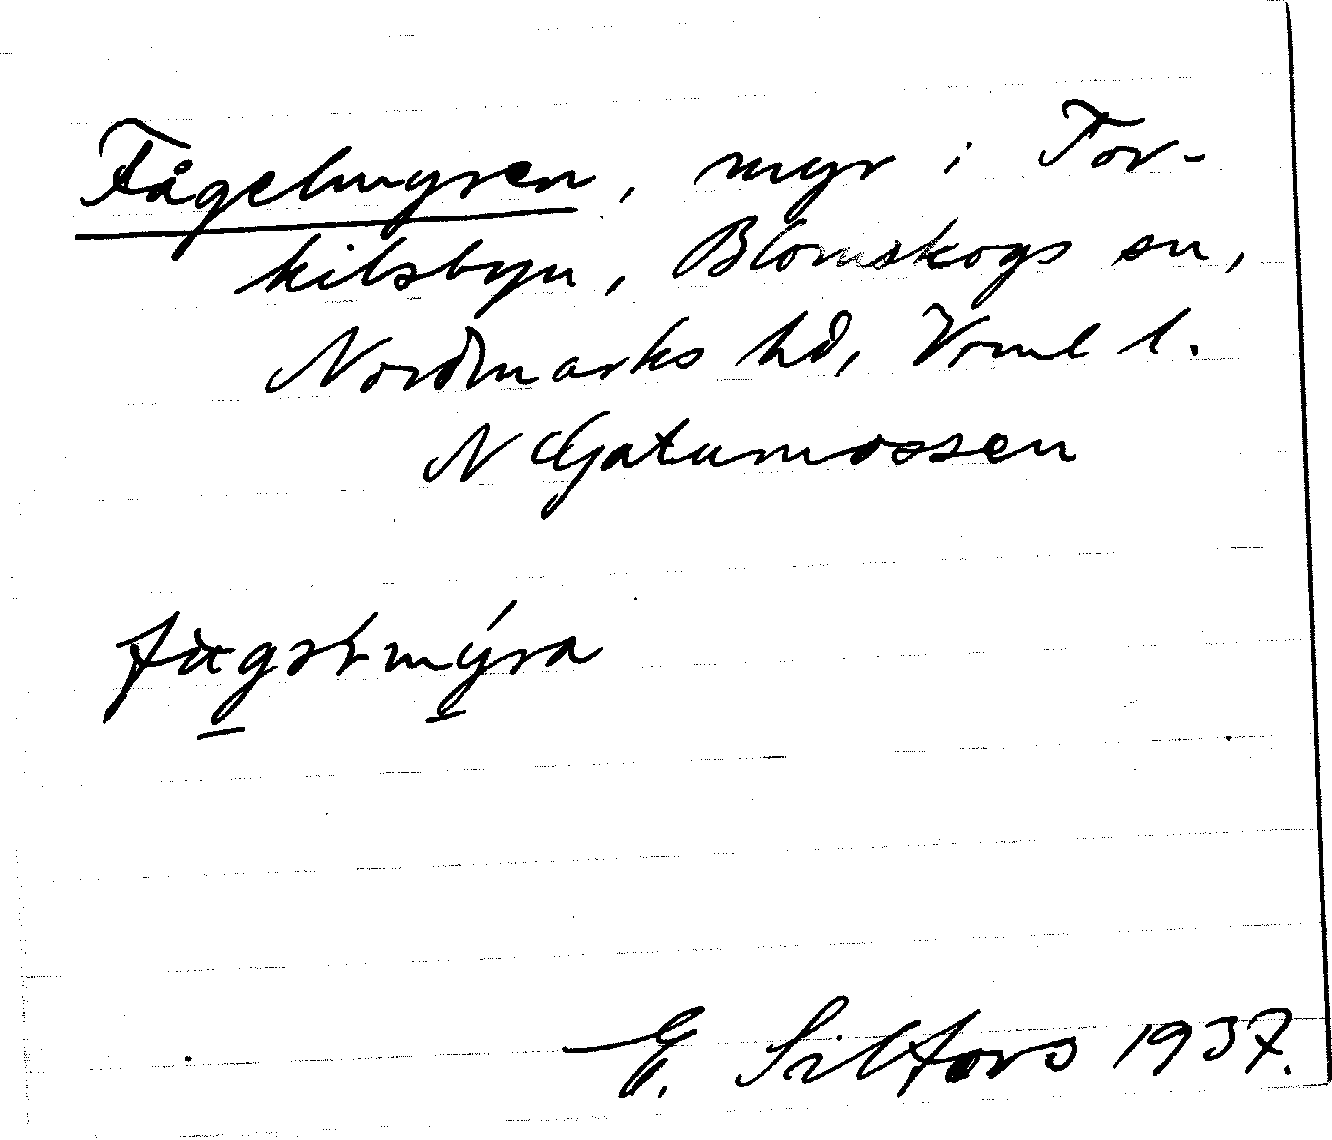 Fågelmyren, myr i Tor-
kilsbyn, Blomskogs sn,
Nordmarks hd, Vrml l.
N Gatumossen
E. Silfors 1937.